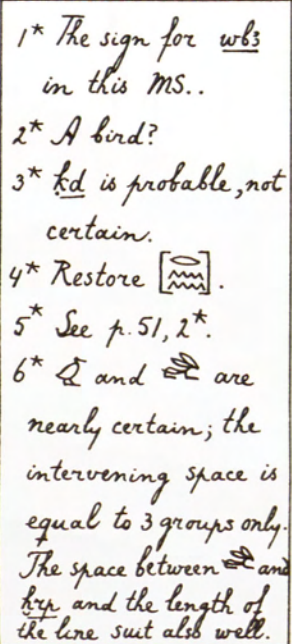 1* The sign for wb3
in this MS..
2* A bird?
3* ḳd is probable, not
certain.
4* Restore [𓂋𓈗].
5* See p. 51, 2*.
6* and are
nearly certain; the
intervening space is
equal to 3 groups only.
The space between and
ḫrp and the length of
the line suit also well.